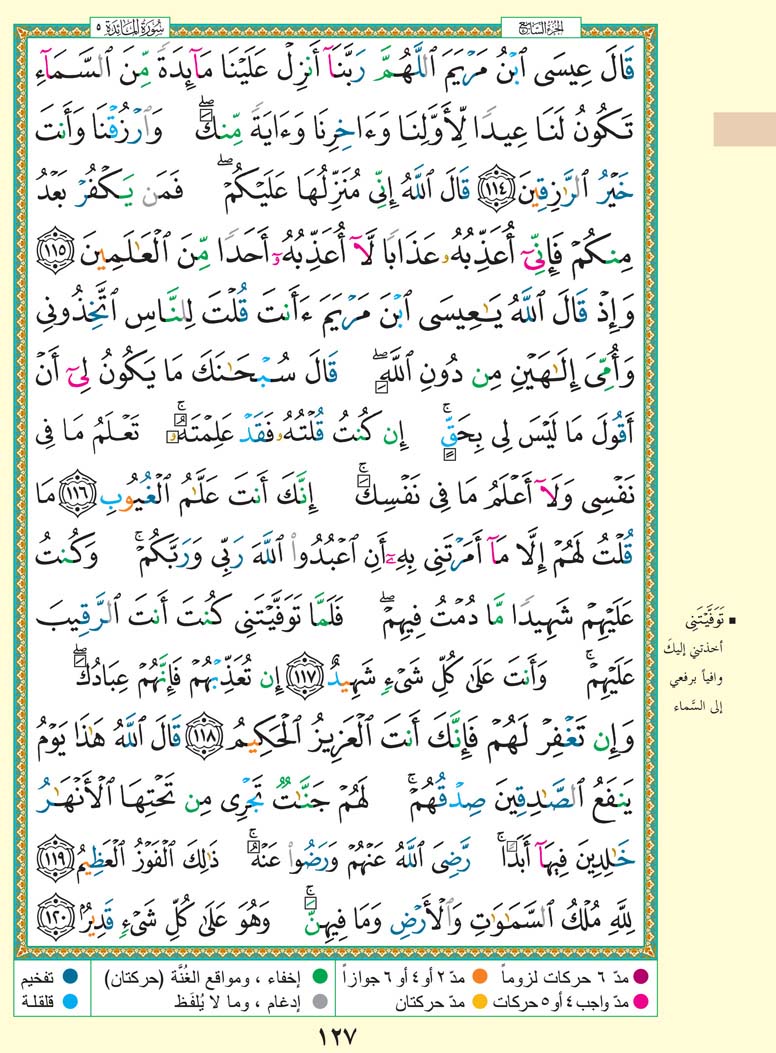 الجزء السابع
سورة المائدة ٥
قَالَ عِيسَى ٱبْنُ مَرْيَمَ ٱللَّهُمَّ رَبَّنَآ أَنزِلْ عَلَيْنَا مَآئِدَةً مِّنَ ٱلسَّمَآءِ
تَكُونُ لَنَا عِيدًا لِّأَوَّلِنَا وَءَاخِرِنَا وَءَايَةً مِّنكَ ۖ وَٱرْزُقْنَا وَأَنتَ
خَيْرُ ٱلرَّٰزِقِينَ ﴿١١٤﴾ قَالَ ٱللَّهُ إِنِّى مُنَزِّلُهَا عَلَيْكُمْ ۖ فَمَن يَكْفُرْ بَعْدُ
مِنكُمْ فَإِنِّىٓ أُعَذِّبُهُۥ عَذَابًا لَّآ أُعَذِّبُهُۥٓ أَحَدًا مِّنَ ٱلْعَٰلَمِينَ ﴿١١٥﴾
وَإِذْ قَالَ ٱللَّهُ يَٰعِيسَى ٱبْنَ مَرْيَمَ ءَأَنتَ قُلْتَ لِلنَّاسِ ٱتَّخِذُونِى
وَأُمِّىَ إِلَٰهَيْنِ مِن دُونِ ٱللَّهِ ۖ قَالَ سُبْحَٰنَكَ مَا يَكُونُ لِىٓ أَنْ
أَقُولَ مَا لَيْسَ لِى بِحَقٍّ ۚ إِن كُنتُ قُلْتُهُۥ فَقَدْ عَلِمْتَهُۥ ۚ تَعْلَمُ مَا فِى
نَفْسِى وَلَآ أَعْلَمُ مَا فِى نَفْسِكَ ۚ إِنَّكَ أَنتَ عَلَّٰمُ ٱلْغُيُوبِ ﴿١١٦﴾ مَا
قُلْتُ لَهُمْ إِلَّا مَآ أَمَرْتَنِى بِهِۦٓ أَنِ ٱعْبُدُوا۟ ٱللَّهَ رَبِّى وَرَبَّكُمْ ۚ وَكُنتُ
عَلَيْهِمْ شَهِيدًا مَّا دُمْتُ فِيهِمْ ۖ فَلَمَّا تَوَفَّيْتَنِى كُنتَ أَنتَ ٱلرَّقِيبَ
عَلَيْهِمْ ۚ وَأَنتَ عَلَىٰ كُلِّ شَىْءٍ شَهِيدٌ ﴿١١٧﴾ إِن تُعَذِّبْهُمْ فَإِنَّهُمْ عِبَادُكَ ۖ
وَإِن تَغْفِرْ لَهُمْ فَإِنَّكَ أَنتَ ٱلْعَزِيزُ ٱلْحَكِيمُ ﴿١١٨﴾ قَالَ ٱللَّهُ هَٰذَا يَوْمُ
يَنفَعُ ٱلصَّٰدِقِينَ صِدْقُهُمْ ۚ لَهُمْ جَنَّٰتٌ تَجْرِى مِن تَحْتِهَا ٱلْأَنْهَٰرُ
خَٰلِدِينَ فِيهَآ أَبَدًا ۚ رَّضِىَ ٱللَّهُ عَنْهُمْ وَرَضُوا۟ عَنْهُ ۚ ذَٰلِكَ ٱلْفَوْزُ ٱلْعَظِيمُ ﴿١١٩﴾
لِلَّهِ مُلْكُ ٱلسَّمَٰوَٰتِ وَٱلْأَرْضِ وَمَا فِيهِنَّ ۚ وَهُوَ عَلَىٰ كُلِّ شَىْءٍ قَدِيرٌۢ ﴿١٢٠﴾
▪ تَوَفَّيْتَنِى
أخذتني إليكَ
وافياً برفعي
إلى السَّماء
مدّ ٦ حركات لزوماً ● مدّ ٢ أو ٤ أو ٦ جوازاً ● إخفاء ، ومواقع الغُنَّة (حركتان) ● تفخيم
مدّ واجب ٤ أو ٥ حركات ● مدّ حركتان ● إدغام ، وما لا يُلفَظ ● قلقلة
١٢٧